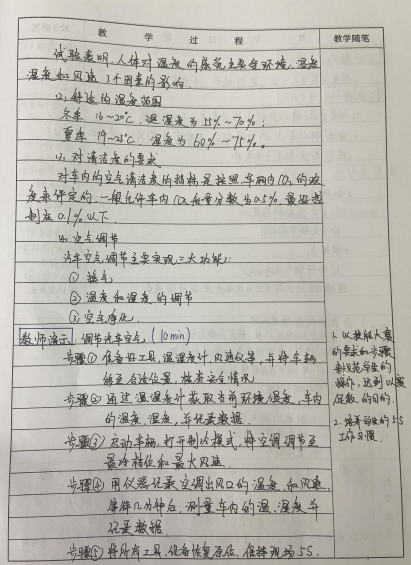 教 学 过 程
教学随笔
试验表明,人体对温度的感受主要受环境,温度
湿度和风速3个因素的影响.
⑵.舒适的温度范围
冬季 16~20℃,湿度为55%~70%;
夏季 19~25℃. 湿度为60%~75%。
⑶.对清洁度的要求
对车内的空气清洁度的指标是按照车厢内CO₂的浓
度来评定的,一般允许车内CO₂质量分数为0.5%,最好控
制在0.1%以下.
⑷.空气调节
汽车空气调节主要实现三大功能:
① 换气
② 温度和湿度的调节
③ 空气净化.
教师演示:调节汽车空气.(10min)
步骤① 准备好工具,温湿度计,风速仪等,并将车辆
停至合适位置,检查安全情况
步骤② 通过温湿度计获取当前环境温度,车内
的温度,湿度,并记录数据.
步骤③ 启动车辆,打开制冷模式,将空调调节至
最冷档位和最大风速.
步骤④ 用仪器记录空调出风口的温度,和风速,
等几分钟后,测量车内的温、湿度并
记录数据
步骤⑤ 将所有工具,设备恢复原位,保持现场5S.
1. 以技能大赛
的要求和步骤
来规范学生的
操作,达到以赛
促教的目的.
2. 培养学生的5S
工作习惯.